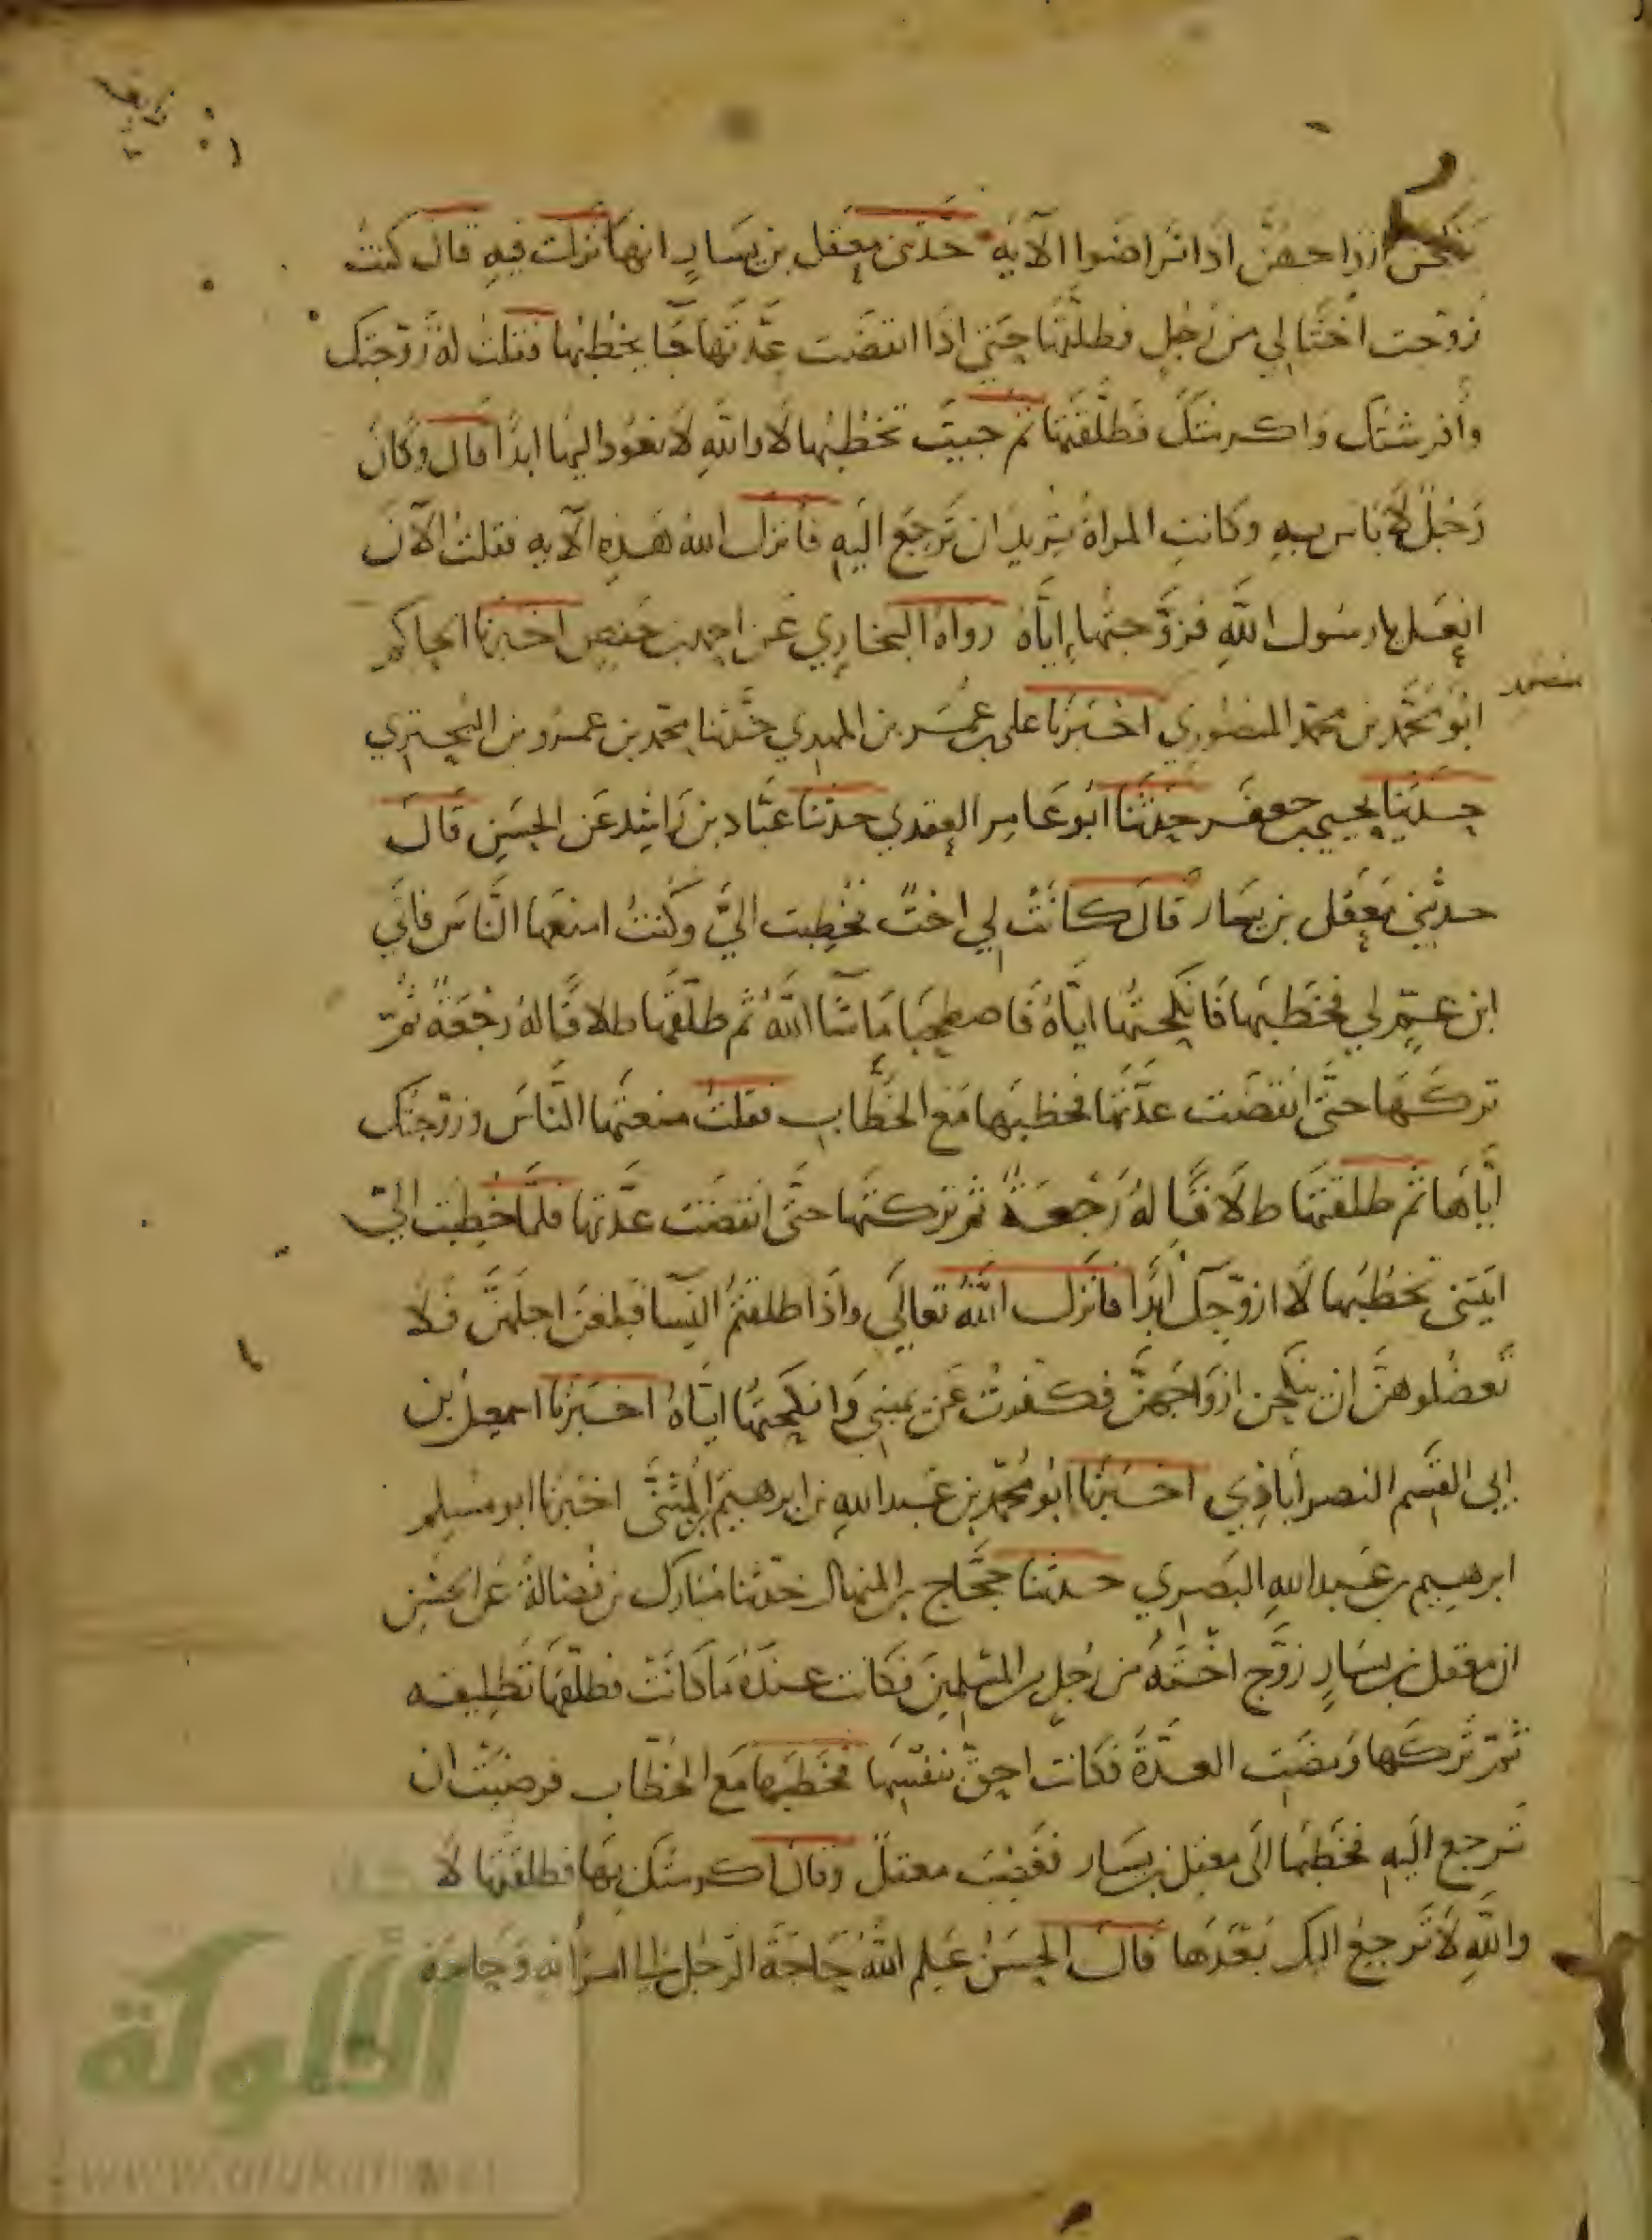 ينكحن ازواجهن اذا تراضوا الآية حدثني معقل بن يسار انها نزلت فيه قال كنت
زوجت اختا لي من رجل فطلقها حتى اذا انقضت عدتها جا يخطبها فقلت له زوجتك
وأفرشتك واكرمتك فطلقتها ثم جيت تخطبها لا والله لا تعود اليها ابدا قال وكان
رجلا لا باس به وكانت المراة تريد ان ترجع اليه فانزل الله هذه الآية فقلت الآن
افعل يا رسول الله فزوجتها إياه رواه البخاري عن احمد بن حفص اخبرنا الحاكم
ابو محمد بن محمد المنصوري اخبرنا علي بن عمر بن المهدي حدثنا محمد بن عمرو بن البختري
حدثنا يحيى بن جعفر حدثنا أبو عامر العقدي حدثنا عباد بن راشد عن الحسن قال
حدثني معقل بن يسار قال كانت لي اخت فخطبت الي وكنت امنعها الناس فاتاني
ابن عم لي فخطبها فانكحتها اياه فاصطحبا ما شا الله ثم طلقها طلاقا له رجعة ثم
تركها حتى انقضت عدتها فخطبها مع الخطاب فقلت منعتها الناس وزوجتك
اياها ثم طلقتها طلاقا له رجعة ثم تركتها حتى انقضت عدتها فلما خطبت الي
اتيتني تخطبها لا ازوجك أبدا فانزل الله تعالى واذا طلقتم النسا فبلغن اجلهن فلا
تعضلوهن ان ينكحن ازواجهن فكفرت عن يميني وانكحتها اياه اخبرنا اسمعيل بن
ابي القسم النصراباذي اخبرنا ابو محمد بن عبد الله بن ابرهيم المثنى اخبرنا ابو مسلم
ابرهيم بن عبد الله البصري حدثنا حجاج بن المنهال حدثنا مبارك بن فضالة عن الحسن
ان معقل بن يسار زوج اخته من رجل من المسلمين فكانت عنده ما كانت فطلقها تطليقه
ثم تركها ومضت العدة فكانت احق بنفسها فخطبها مع الخطاب فرضيت ان
ترجع اليه فخطبها الى معقل بن يسار فغضب معقل وقال اكرمتك بها فطلقتها لا
والله لا ترجع اليك بعدها قال الحسن علم الله حاجة الرجل الى امرأته وحاجة
الألوكة